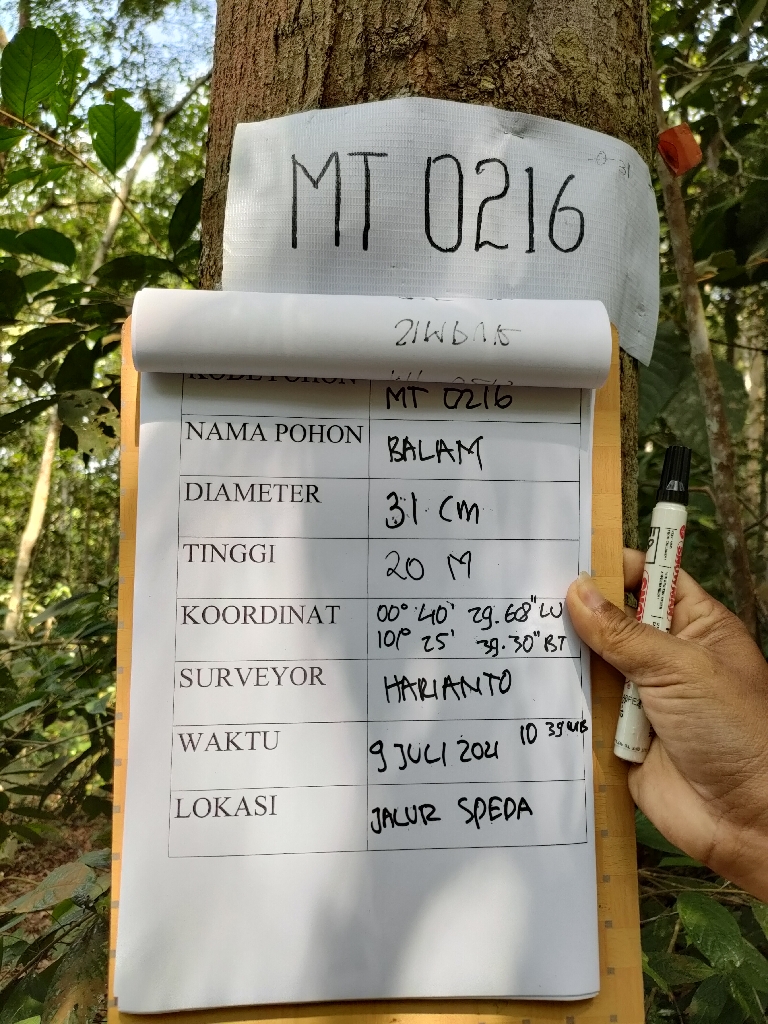 MT 0216
KODE POHON MT 0216
NAMA POHON BALAM
DIAMETER 31 cm
TINGGI 20 M
KOORDINAT 00° 40' 29.68" LU
101° 25' 39.30" BT
SURVEYOR HARIANTO
WAKTU 9 JULI 2021 10 39 WIB
LOKASI JALUR SPEDA